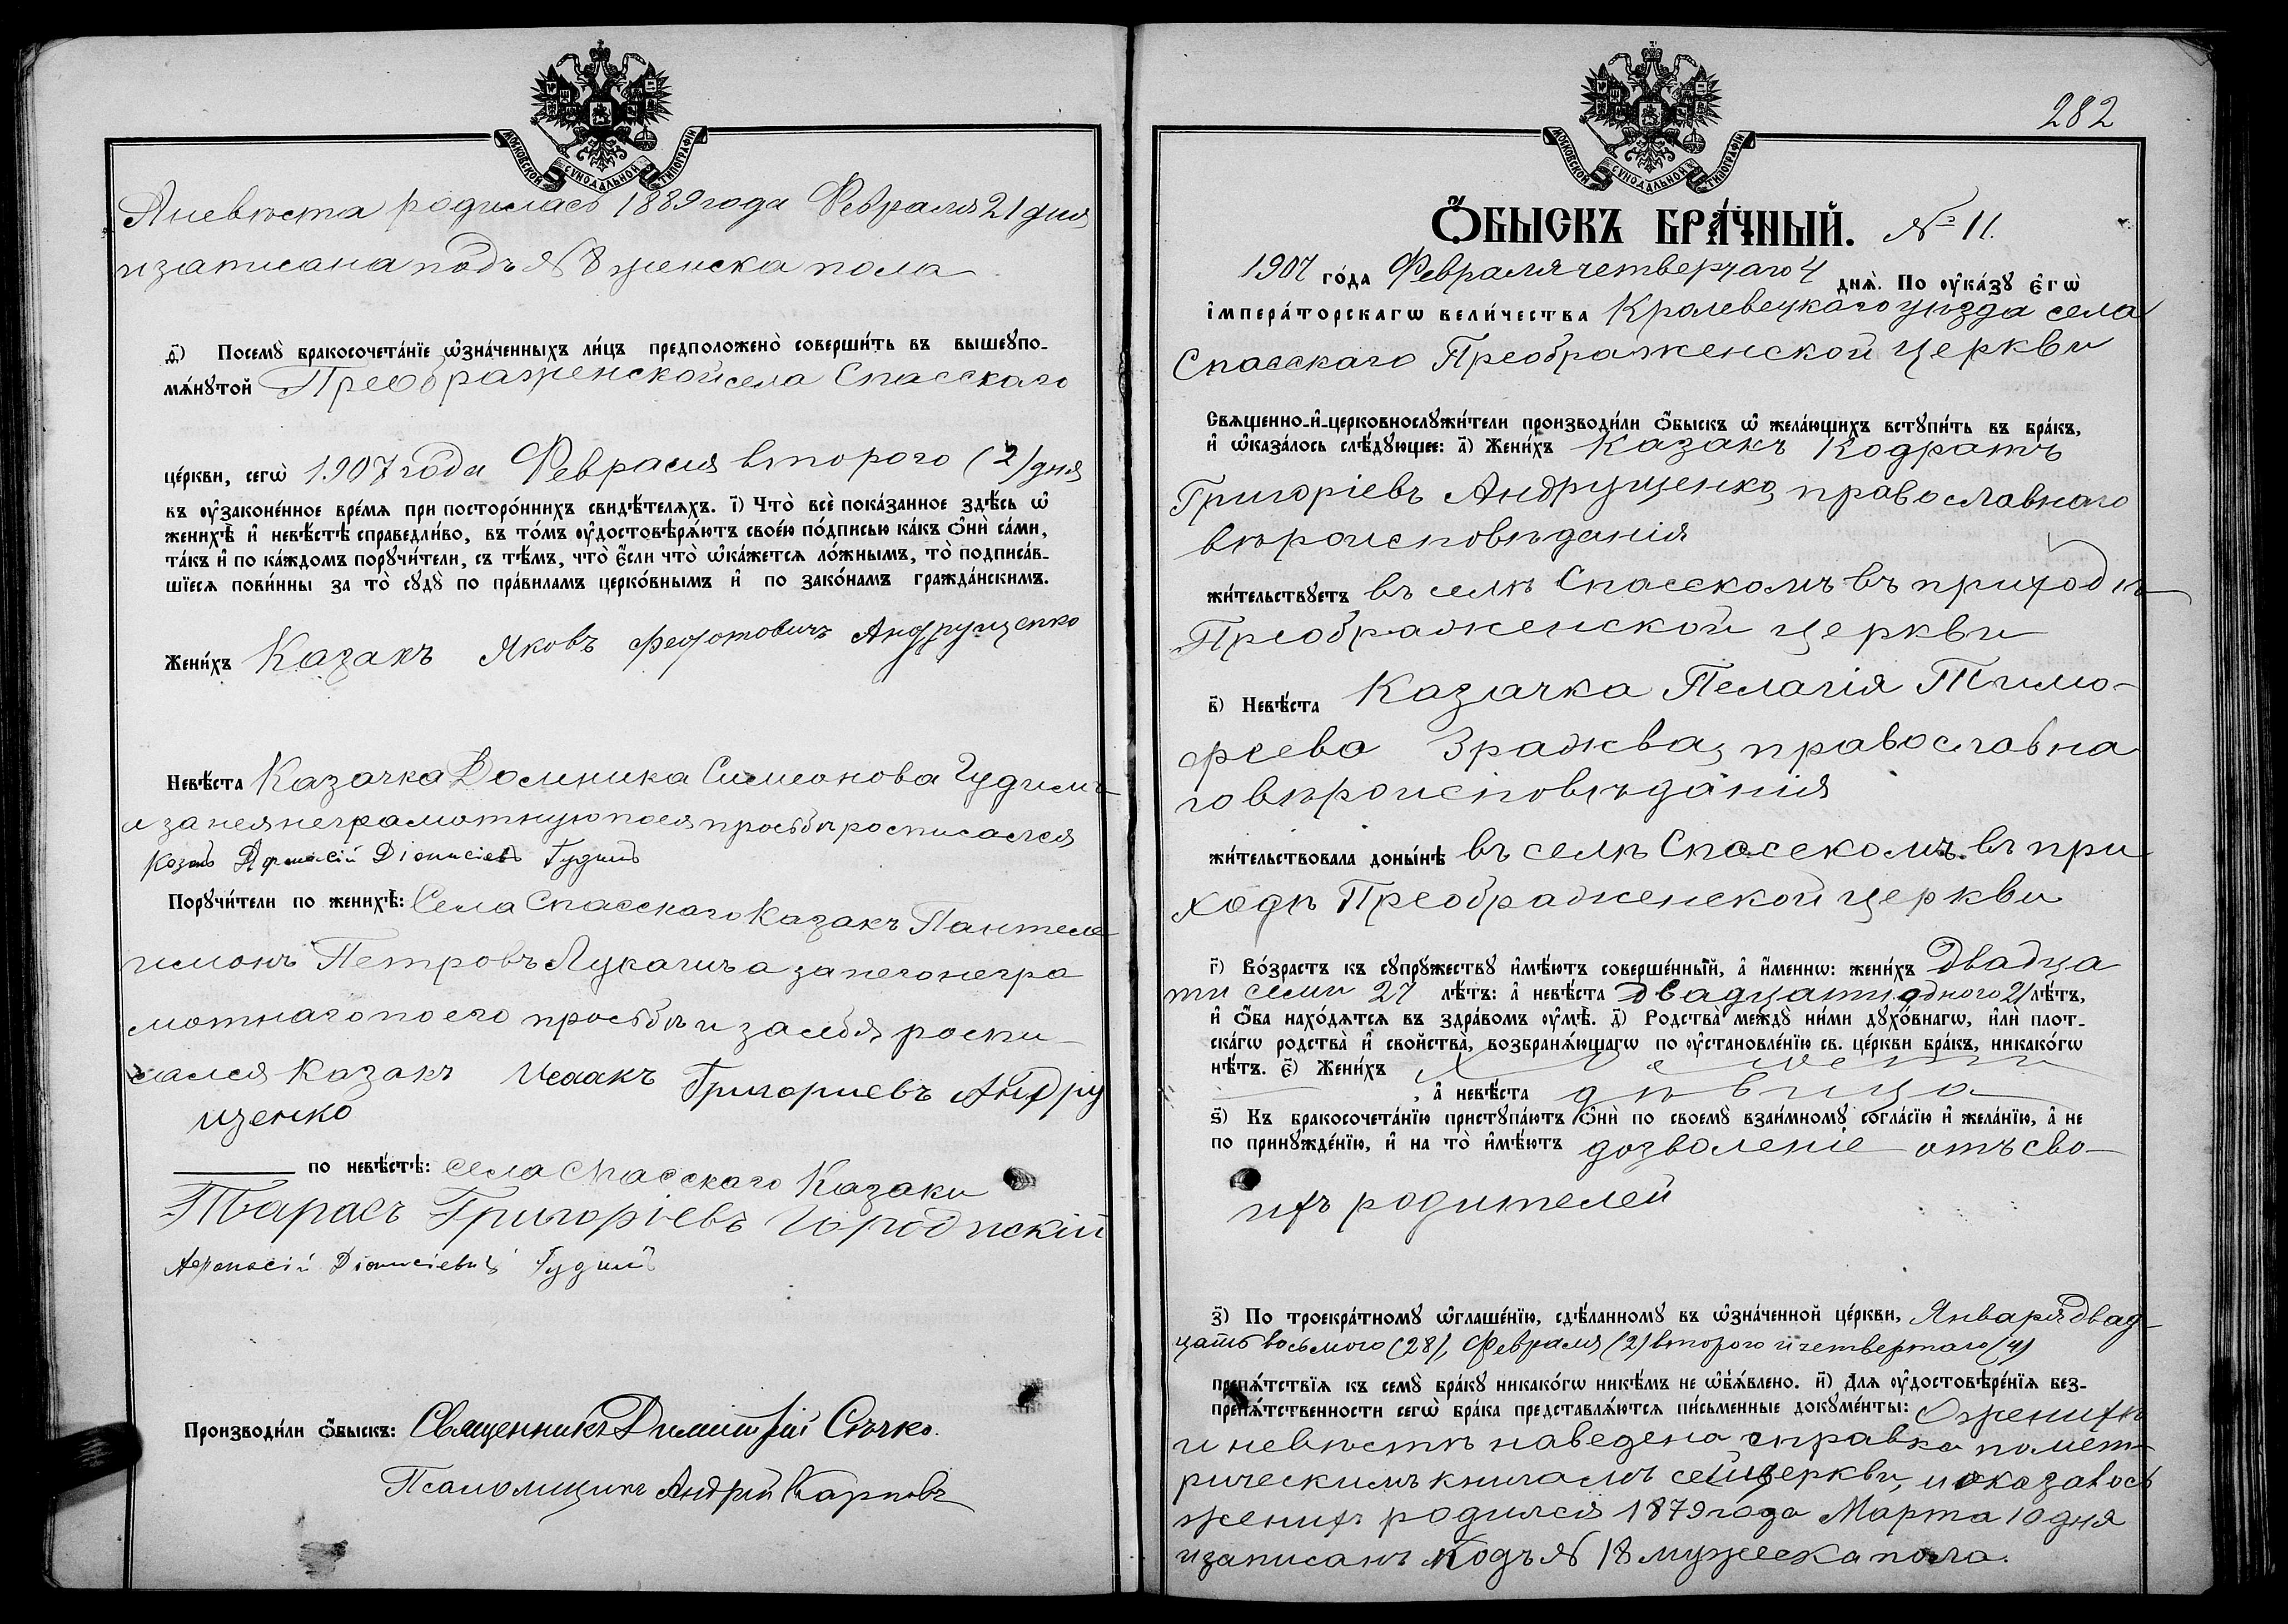 МОСКОВСКОЙ СУНОДАЛЬНОЙ ТИПОГРАФІИ
А невѣста родилась 1889 года Февраля 21 дня
и записана подъ № 8 женска пола
д҃і) Посемꙋ̀ бракосочета́нїе ѡ҆зна́ченныхъ ли́цъ предположено̀ соверши́ть въ вышеꙋпо-
мѧ́нꙋтой Преображенской села Спасскаго
це́ркви, сегѡ̀ 1907 года Февраля второго (2) дня
въ ᲂу҆законе́нное вре́мѧ при посторо́ннихъ свидѣ́телѧхъ. і҃) Что̀ всѐ пока́занное здѣ́сь ѡ҆
женихѣ̀ и҆ невѣ́стѣ справедли́во, въ то́мъ ᲂу҆достовѣрѧ́ютъ свое́ю по́дписью ка́къ ѻ҆нѝ са́ми,
та́къ и҆ по ка́ждомъ порꙋчи́тели, съ тѣ́мъ, что̀ є҆́сли что̀ ѡ҆ка́жетсѧ ло́жнымъ, то̀ подписа́в-
шїесѧ пови́нны за то̀ сꙋдꙋ̀ по пра́виламъ церко́внымъ и҆ по зако́намъ гражда́нскимъ.
Жени́хъ Казакъ Яковъ Федотовичъ Андрущенко
Невѣ́ста Казачка Домника Симеонова Гудимъ
а за нея неграмотную по ея просьбѣ росписался
Козакъ Афанасій Діонисіевъ Гудимъ
Порꙋчи́тели по женихѣ̀: Села Спасскаго Казакъ Пантеле
имонъ Петровъ Лукашъ а за него негра
мотнаго по его просьбѣ и за себя роспи
сался казакъ Исаакъ Григориевъ Андру
щенко
по невѣ́стѣ: села Спасского Казаки
Тарасъ Григоріевъ Городискій
Афанасій Діонисіевъ Гудимъ
Производи́ли ѻ҆́быскъ: Священникъ Димитрій Сѣчко.
Псаломщикъ Андрей Карповъ
282
МОСКОВСКОЙ СУНОДАЛЬНОЙ ТИПОГРАФІИ
Ѻ҆́БЫСКЪ БРА́ЧНЫЙ. № 11.
1907 го́да Февраля четвертаго 4 днѧ̀. По ᲂу҆ка́зꙋ є҆гѡ̀
і҆мпера́торскагѡ вели́чества Кролевецкаго уѣзда села
Спасскаго Преображенской церкви
Свѧщенно-и҆-церковнослꙋжи́тели производи́ли ѻ҆́быскъ ѡ҆ жела́ющихъ встꙋпи́ть въ бра́къ,
и҆ ѡ҆каза́лось слѣ́дꙋющее: а҃) Жени́хъ Казакъ Кодратъ
Григоріевъ Андрущенко, православнаго
вѣроисповѣданія
жи́тельствꙋетъ въ селѣ Спасскомъ въ приходѣ
Преображенской церкви
в҃) Невѣ́ста Казачка Пелагія Тимо-
феева Зражва, православна
го вѣроисповѣданія
жи́тельствовала доны́нѣ въ селѣ Спасскомъ въ при
ходѣ Преображенской церкви
г҃) Во́зрастъ къ сꙋпрꙋ́жествꙋ и҆мѣ́ютъ соверше́нный, а҆ и҆́меннѡ: жени́хъ Двадца
ти семи 27 лѣ́тъ: а҆ невѣ́ста двадцати одного 21 лѣ́тъ,
и҆ ѻ҆́ба нахо́дѧтсѧ въ здра́вомъ ᲂу҆мѣ̀. д҃) Родства̀ междꙋ̀ ни́ми дꙋхо́внагѡ, и҆лѝ плот-
ска́гѡ родства̀ и҆ сво́йства, возбранѧ́ющагѡ по ᲂу҆становле́нїю св. це́ркви бра́къ, никако́гѡ
нѣ́тъ. є҃) Жени́хъ
, а҆ невѣ́ста дѣвица
ѕ҃) Къ бракосочета́нїю пристꙋпа́ютъ ѻ҆нѝ по своемꙋ̀ взаи́мномꙋ согла́сїю и҆ жела́нїю, а҆ не
по принꙋжде́нїю, и҆ на то̀ и҆мѣ́ютъ дозволеніе отъ сво-
ихъ родителей
з҃) По троекра́тномꙋ ѡ҆глаше́нїю, сдѣ́ланномꙋ въ ѡ҆зна́ченной це́ркви, Января двад-
цать восьмого (28), Февраля (2) второго и четвертаго (4)
препѧ́тствїѧ къ семꙋ̀ бра́кꙋ никако́гѡ никѣ́мъ не ѡ҆б̾ѧ́влено. и҃) Длѧ ᲂу҆достовѣре́нїѧ без-
препѧ́тственности сегѡ̀ бра́ка представлѧ́ютсѧ пи́сьменные докꙋме́нты: О женихѣ
и невѣстѣ наведена справка по мет-
рическимъ книгамъ сей церкви, и оказалось
женихъ родился 1879 года Марта 10 дня
и записанъ подъ № 18 мужеска пола.